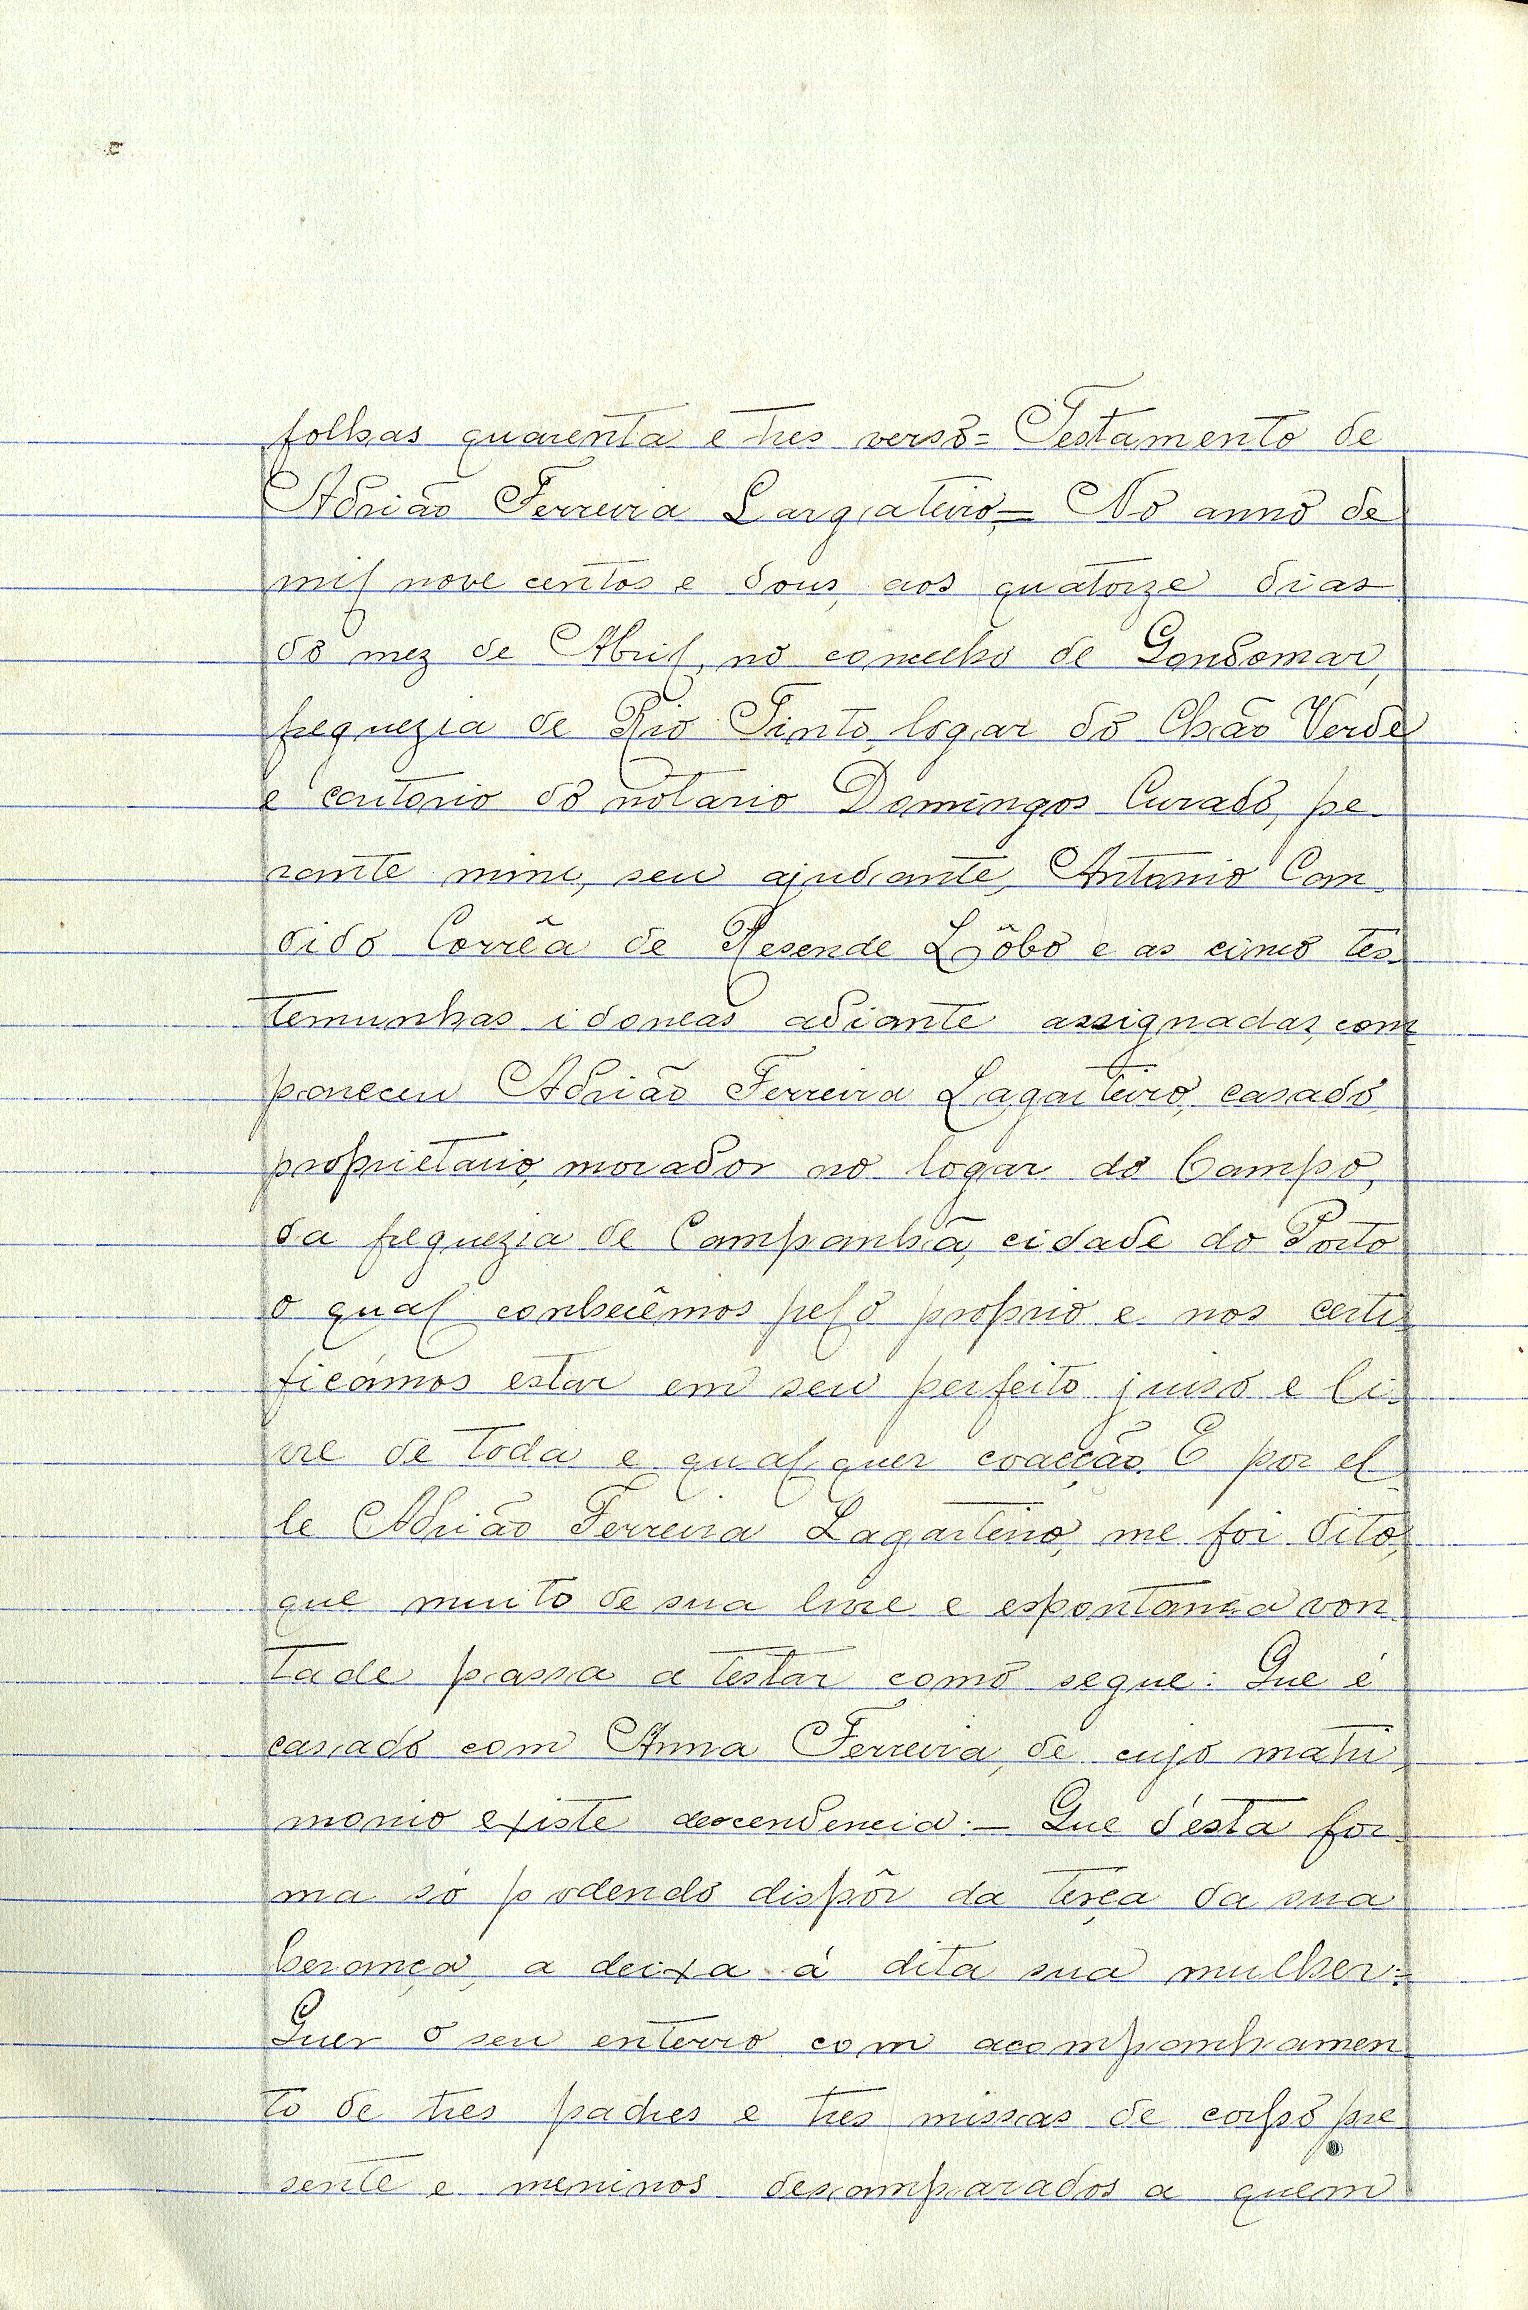 folhas quarenta e tres verso= Testamento de
Adrião Ferreira Largateiro,= No anno de
mil nove centos e dous, aos quatorze dias
do mez de Abril, no concelho de Gondomar,
freguezia de Rio Tinto, logar do Chão Verde
e cartorio do notario Domingos Curado, pe-
rante mim, seu ajudante, Antonio Can-
dido Corrêa de Resende Lôbo e as cinco tes-
temunhas idoneas adiante assignadas, com-
pareceu Adrião Ferreira Lagarteiro, casado,
proprietario, morador no logar do Campo,
da freguezia de Campanhã, cidade do Porto
o qual conhecêmos pelo proprio e nos certi-
ficámos estar em seu perfeito juiso e li-
vre de toda e qualquer coacção. E por el-
le Adrião Ferreira Lagarteiro, me foi dito,
que muito de sua livre e espontanea von-
tade passa a testar como segue: Que é
casado com Anna Ferreira, de cujo matri-
monio existe descendencia:- Que d'esta for-
ma só podendo dispôr da terça da sua
herança, a deixa á dita sua mulher:=
Quer o seu enterro com acompanhamen-
to de tres padres e tres missas de corpo pre-
sente e meninos desamparados a quem